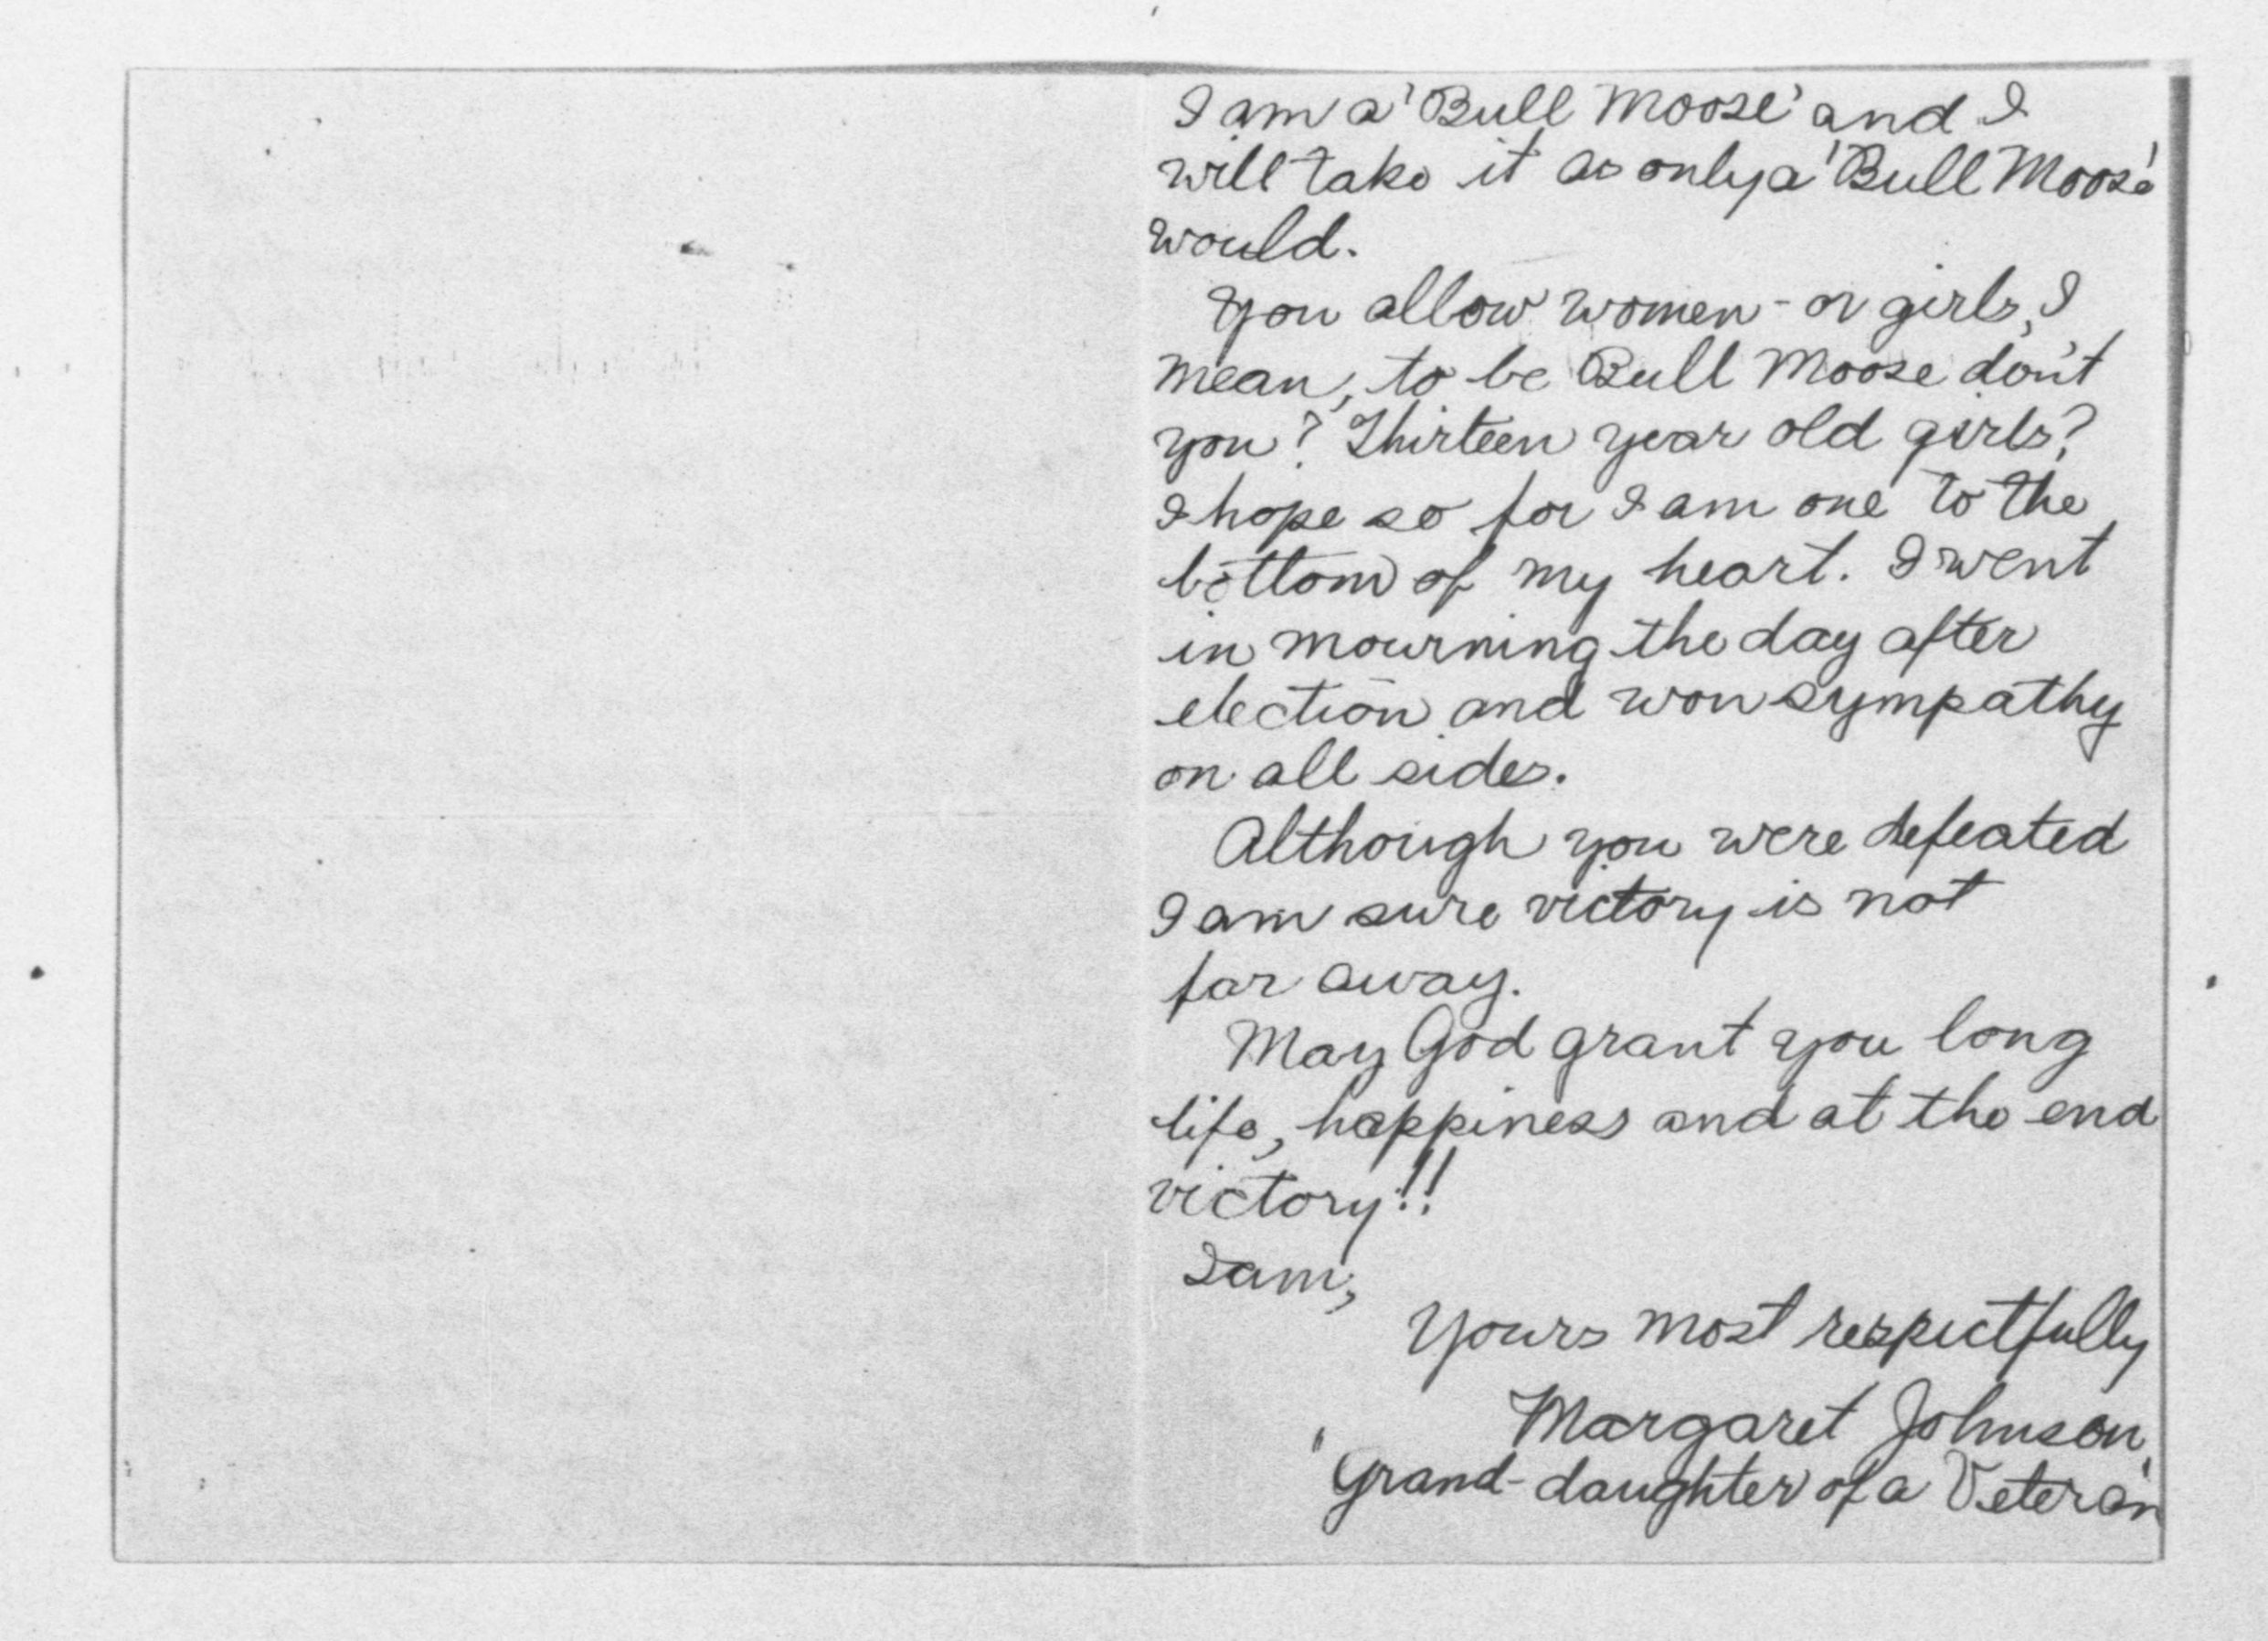 I am a 'Bull Moose' and I
will take it as only a 'Bull Moose'
would.
You allow women - or girls, I
mean, to be Bull Moose don't
you? Thirteen year old girls?
I hope so for I am one to the
bottom of my heart. I went
in mourning the day after
election and won sympathy
on all sides.
Although you were defeated
I am sure victory is not
far away.
May God grant you long
life, happiness and at the end
victory!!
I am,
Yours most respectfully
Margaret Johnson,
'Grand-daughter of a Veteran'